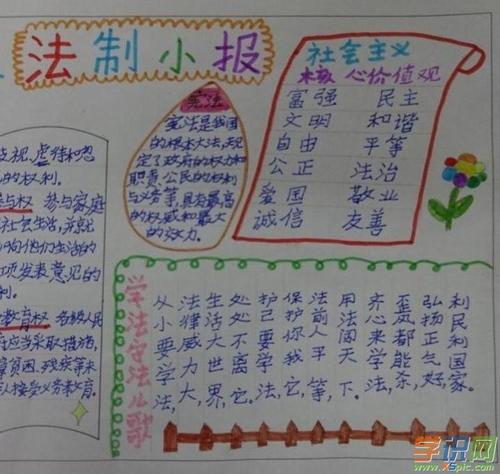 法制小报
歧视,虐待和忽
的权利。
与权 参与家庭
社会生活,并就
向他们生活的
项发表意见的
利。
教育权 各级人民
应当采取措施,
障贫困、残疾等未
人接受义务教育。
宪法
宪法是我国
的根本大法,规
定了政府的权力和
职责、公民的权利
与义务等,具有最高
的权威和最大
的效力。
社会主义
核心价值观
富强 民主
文明 和谐
自由 平等
公正 法治
爱国 敬业
诚信 友善
学法守法儿歌
从小要学法,
法律威力大,
生活大世界,
处处不离它,
护己要学法,
保护你我它,
法前人平等,
用法闯天下。
齐心来学法,
歪来都能杀,
弘扬正气好,
利民利国家。
学识网
www.xspic.com